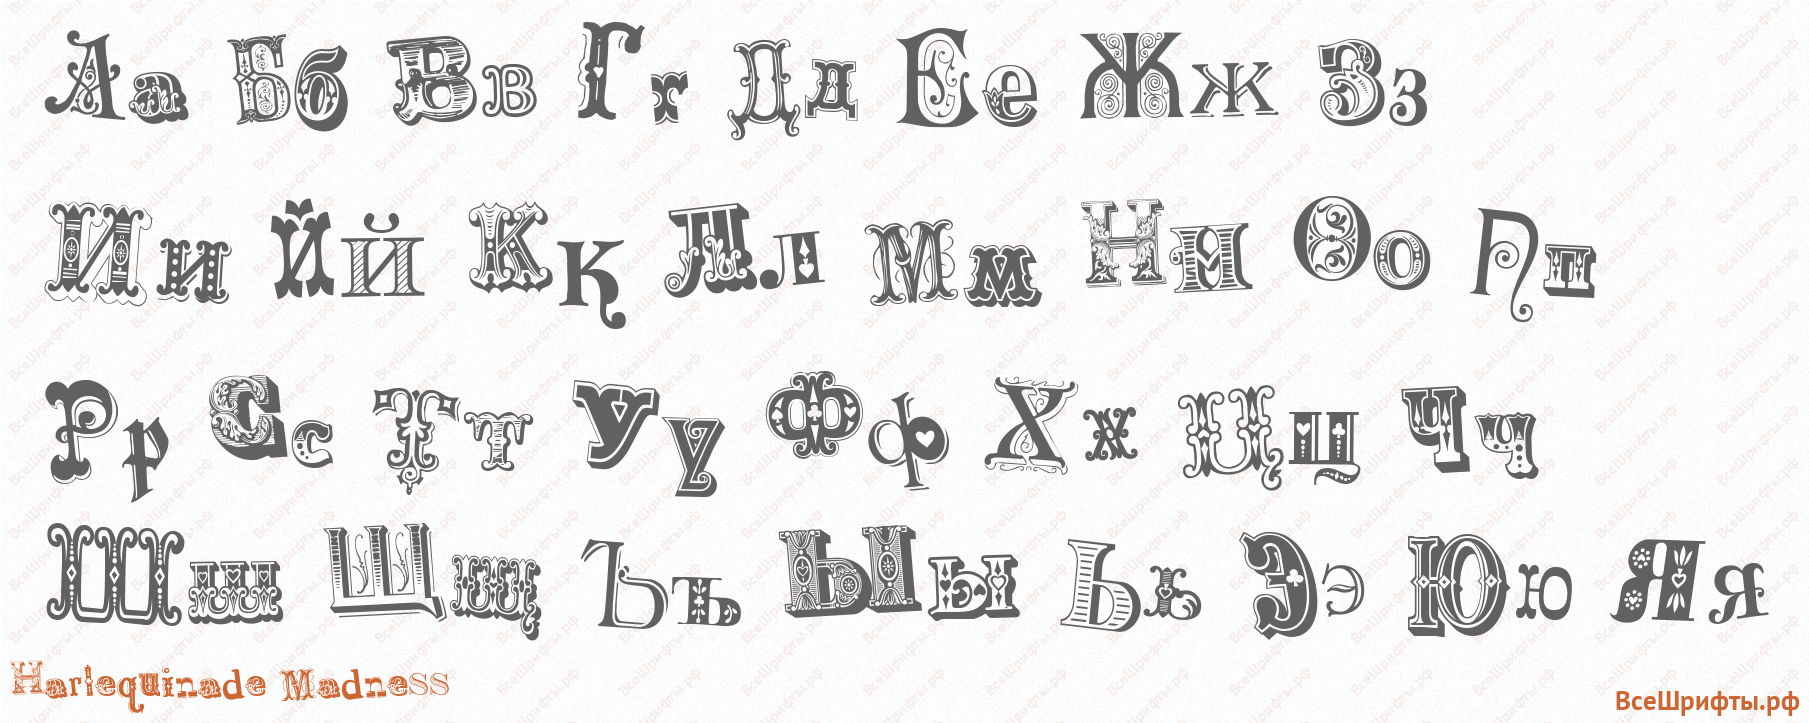 Аа Бб Вв Гг Дд Ее Жж Зз
Ии Йй Кк Лл Мм Нн Оо Пп
Рр Сс Тт Уу Фф Хх Цц Чч
Шш Щщ Ъъ Ыы Ьь Ээ Юю Яя
Harlequinade Madness
ВсеШрифты.рф